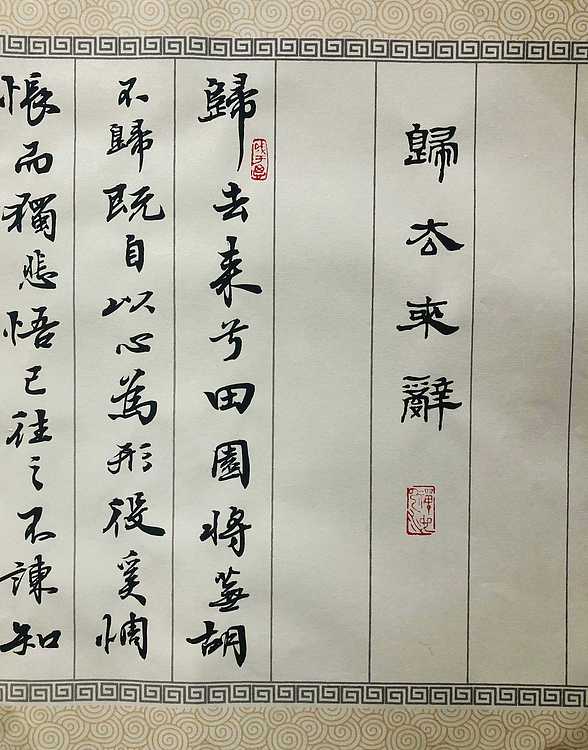 歸去來辭
歸去来兮田園将蕪胡
不歸既自以心為形役奚惆
悵而獨悲悟已往之不諫知